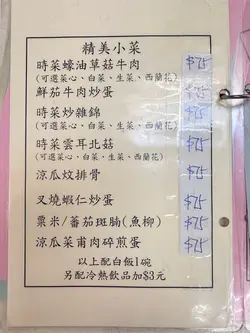 精美小菜
時菜蠔油草菇牛肉 $75
(可選菜心、白菜、生菜、西蘭花)
鮮茄牛肉炒蛋 $75
時菜炒雜錦 $75
(可選菜心、白菜、生菜、西蘭花)
時菜雲耳北菇 $75
(可選菜心、白菜、生菜、西蘭花)
涼瓜炆排骨 $75
叉燒蝦仁炒蛋 $75
粟米/蕃茄斑腩(魚柳) $75
涼瓜菜甫肉碎煎蛋 $75
以上配白飯1碗
另配冷熱飲品加$3元